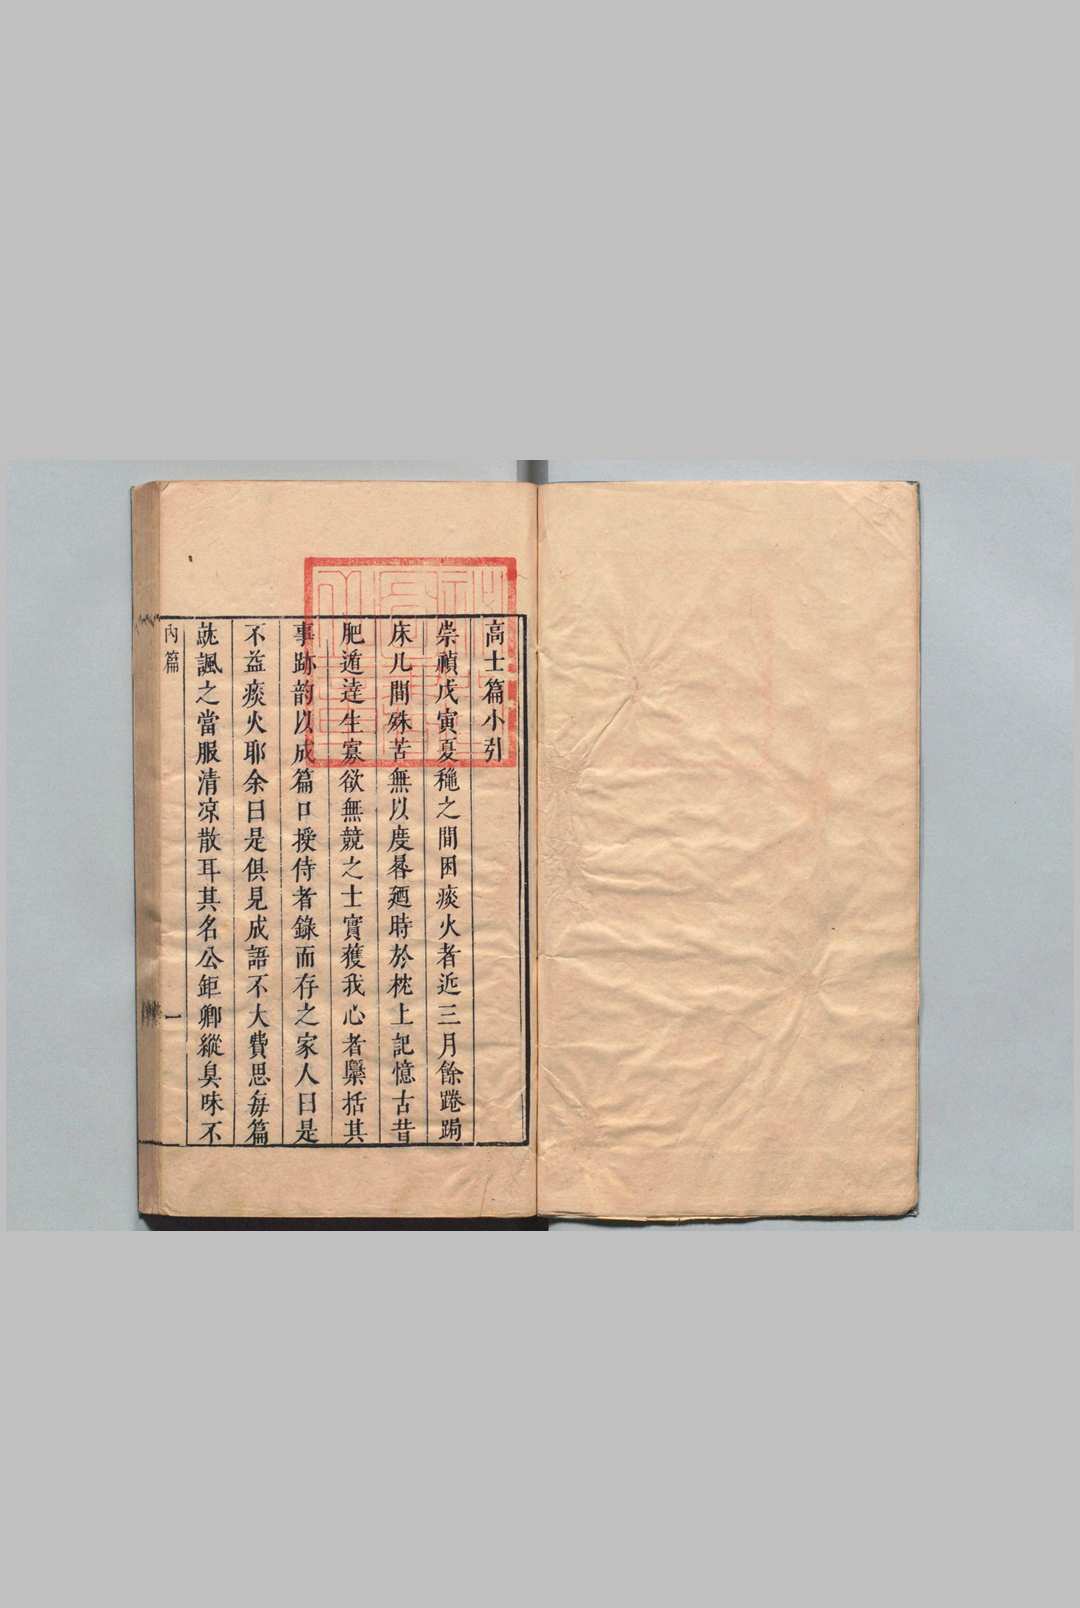 高士篇小引
崇禎戊寅夏穐之間困痰火者近三月餘踡跼
床几間殊苦無以度晷廼時於枕上記憶古昔
肥遁達生寡欲無競之士實獲我心者檃括其
事跡韵以成篇口授侍者錄而存之家人曰是
不益痰火耶余曰是俱見成語不大費思每篇
就諷之當服清凉散耳其名公鉅卿縱臭味不
內篇
一